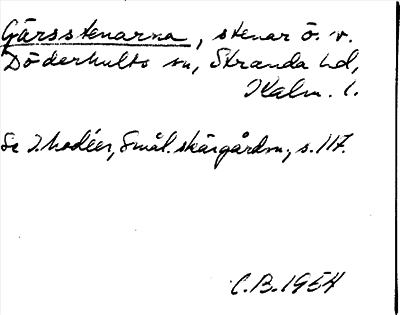 Gårsstenarna, stenar ö. v.
Döderhults sn, Stranda hd,
Kalm. l.
Se I. Modéer, Smål. skärgårdsn., s. 117.
C.B. 1954